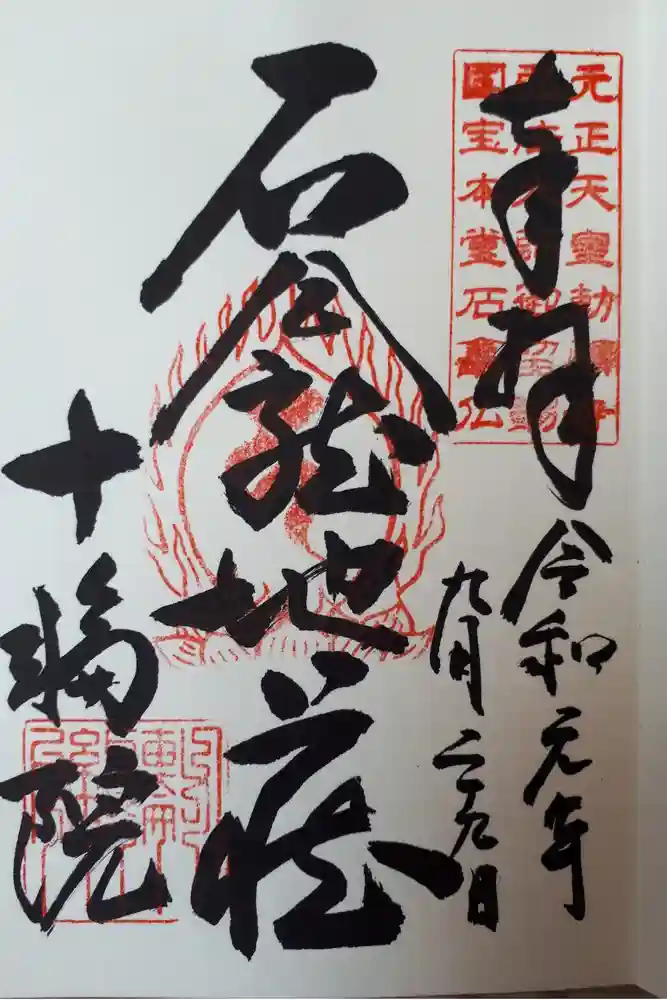 元正天皇勅願寺
國宝本堂石龕仏
奉拝
令和元年
九月二十九日
石龕地蔵
十輪院